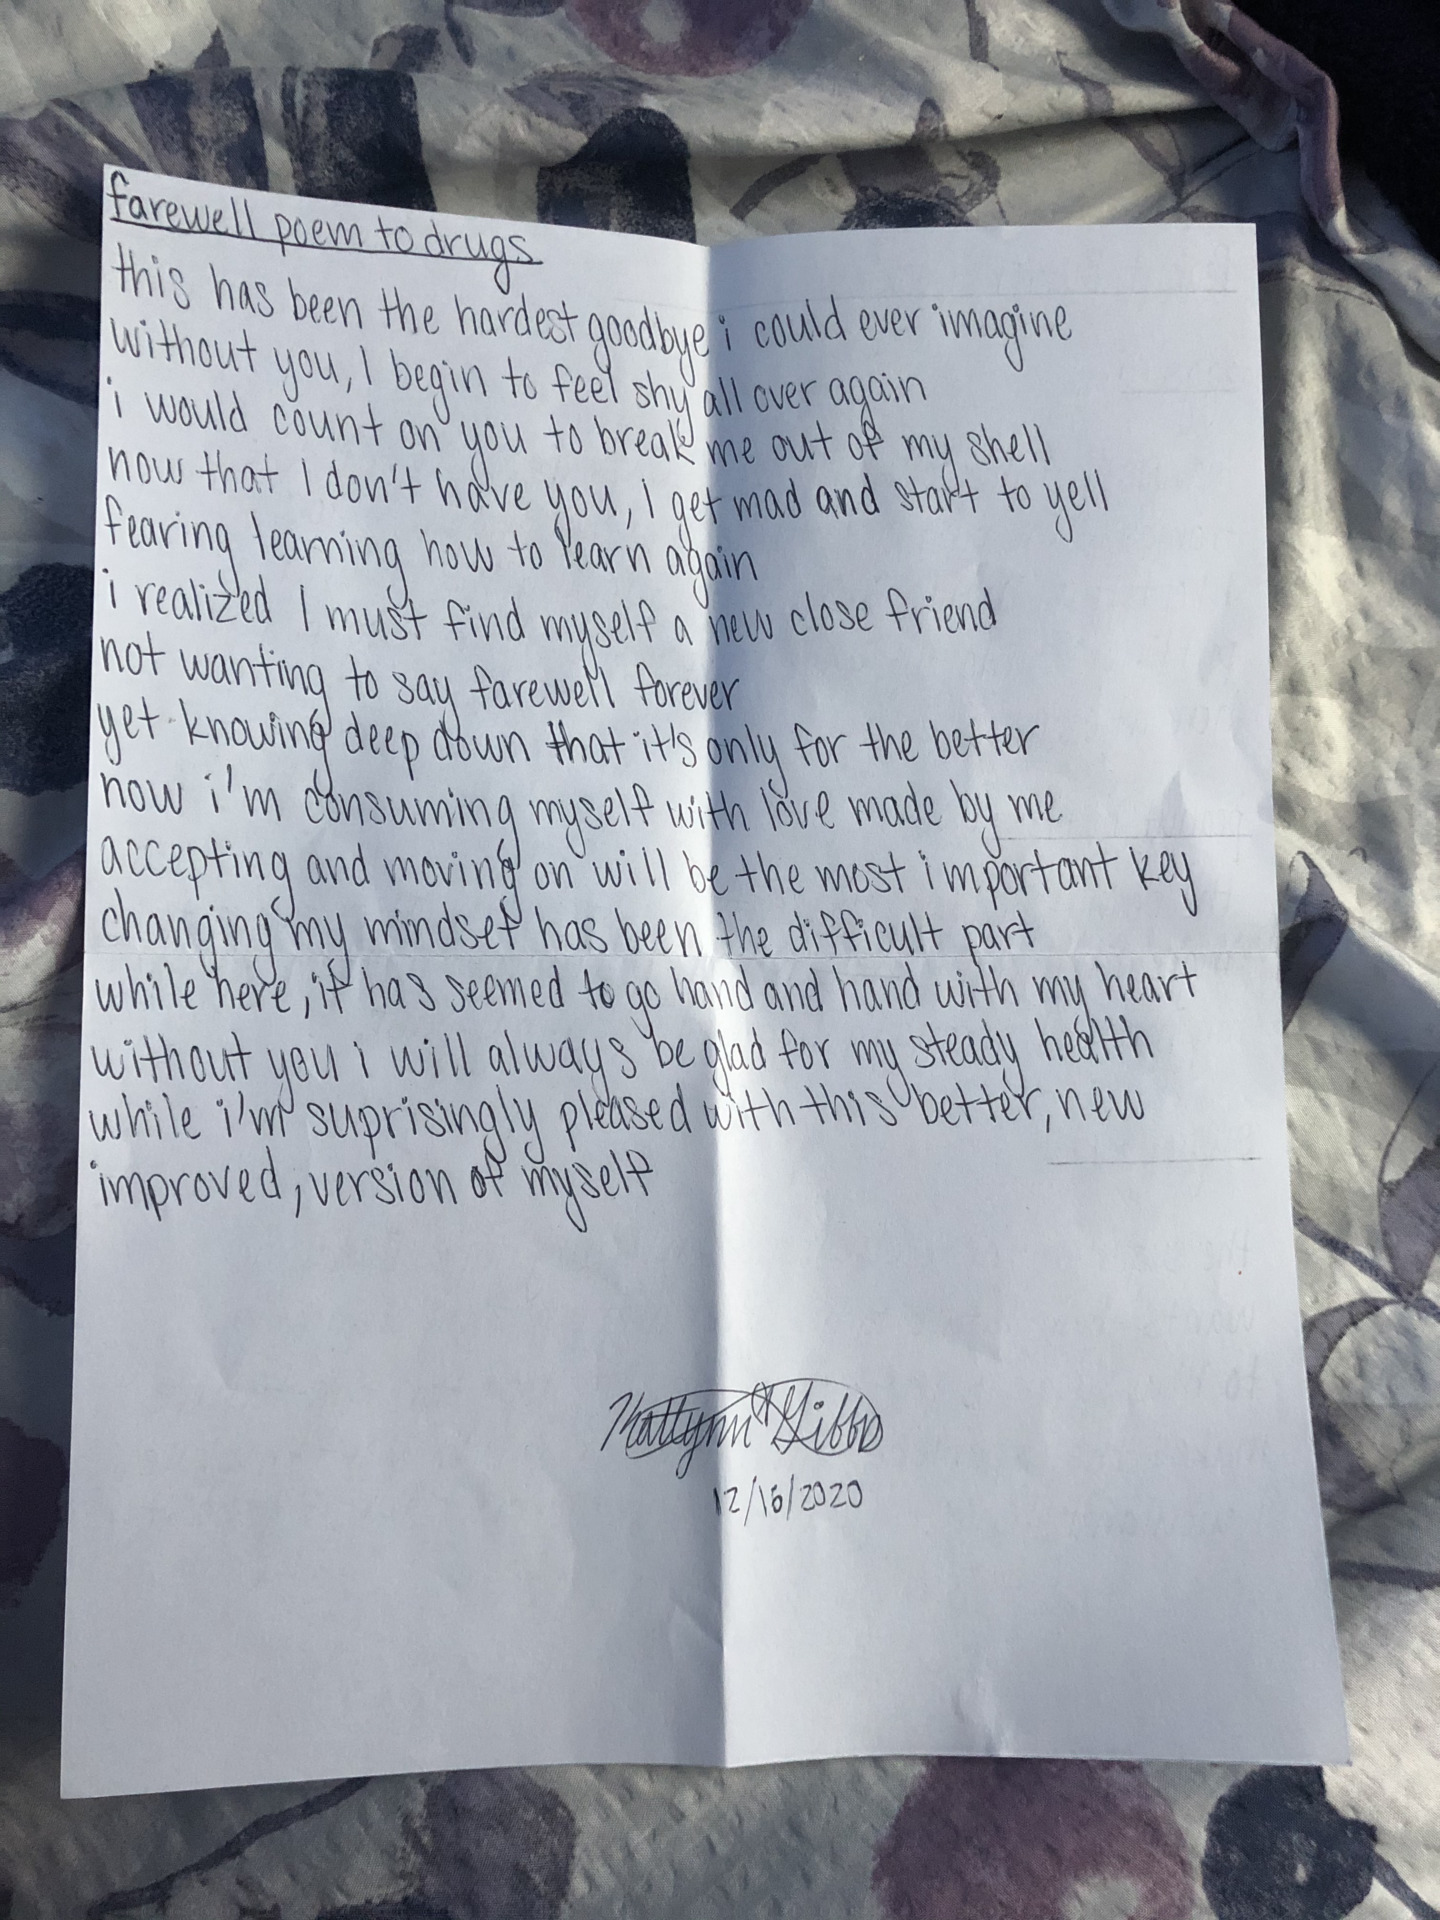 farewell poem to drugs
this has been the hardest goodbye i could ever imagine
without you, I begin to feel shy all over again
i would count on you to break me out of my shell
now that I don't have you, I get mad and start to yell
fearing learning how to learn again
i realized I must find myself a new close friend
not wanting to say farewell forever
yet knowing deep down that it's only for the better
now i'm consuming myself with love made by me
accepting and moving on will be the most important key
changing my mindset has been the difficult part
while here, it has seemed to go hand and hand with my heart
without you i will always be glad for my steady health
while i'm suprisingly pleased with this better, new
improved, version of myself
Katlynn Gibbs
12/16/2020